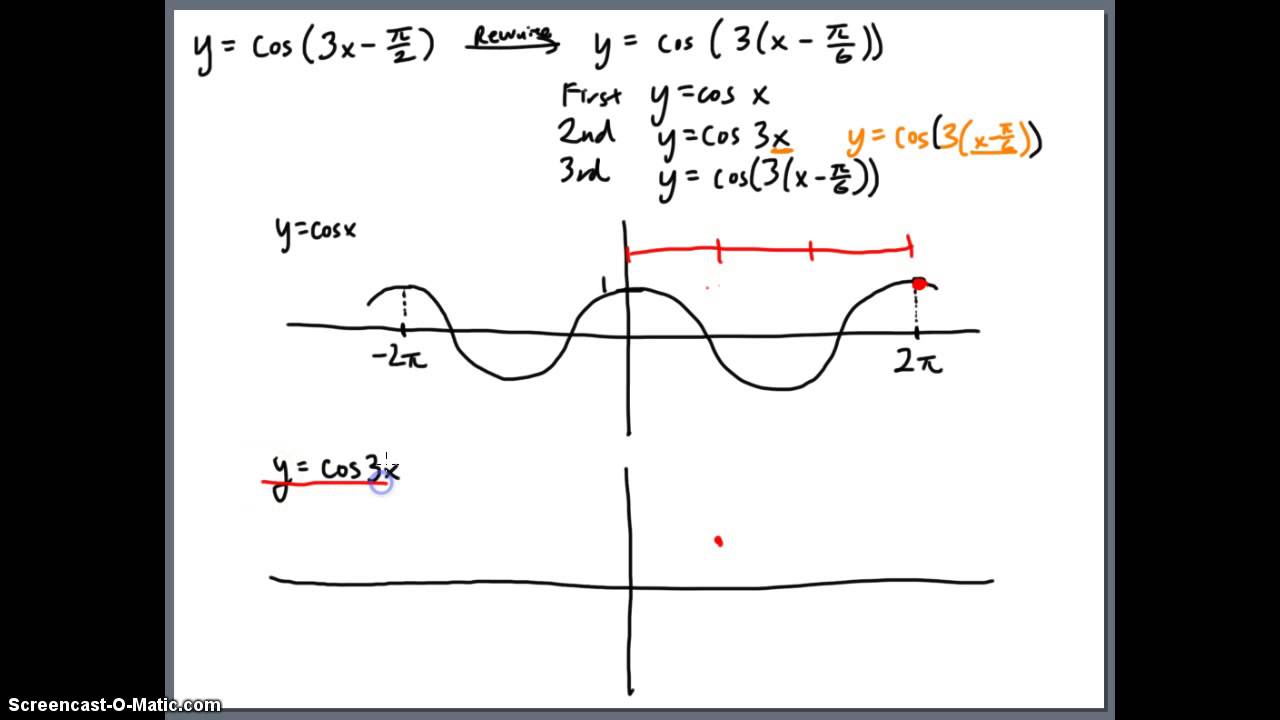 y = cos(3x - π/2) Rewrite y = cos(3(x - π/6))
First y = cos x
2nd y = cos 3x y = cos(3(x - π/6))
3rd y = cos(3(x - π/6))
y = cosx
1
-2π 2π
y = cos 3x
Screencast-O-Matic.com